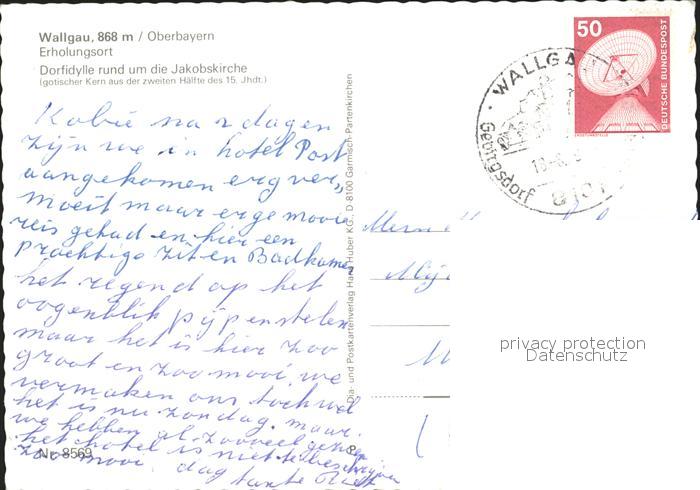 Wallgau, 868 m / Oberbayern
Erholungsort
Dorfidylle rund um die Jakobskirche
(gotischer Kern aus der zweiten Hälfte des 15. Jhdt.)
Kobie na 2 dagen
zijn we in hotel Post
aangekomen erg ver„
moeit maar erge mooie
reis gehad en hier een
prachtige zit en Badkamer
het regend op het
oogenblik pijpenstelen
maar het is hier zoo
groot en zoo mooi, we
vermaken ons toch wel
het is nu zondag. maar
we hebben al zooveel gezien
het hotel is niet te beschrijven
zoo mooi. dag tante
Nr. 8569
Dia- und Postkartenverlag Hans Huber KG., D 8100 Garmisch-Partenkirchen
50
DEUTSCHE BUNDESPOST
WALLGAU
Gebirgsdorf
8101
privacy protection
Datenschutz